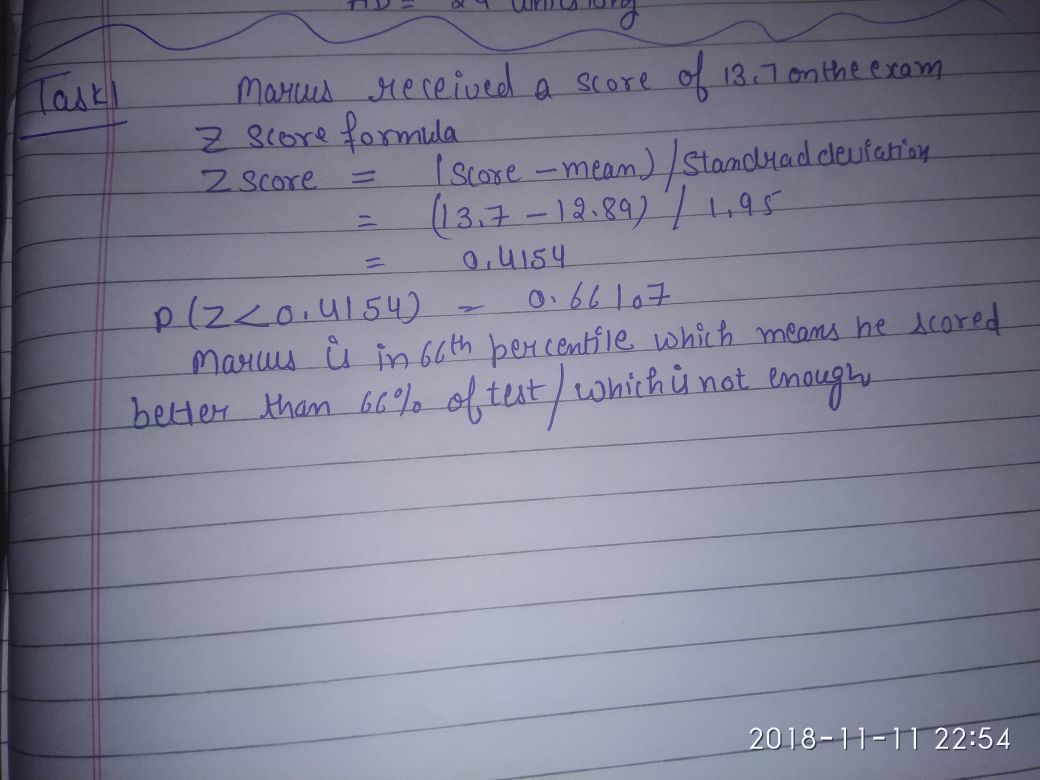 AD = 24 units long
Task 1 Marcus received a score of 13.7 on the exam
Z score formula
Z score = (score - mean) / standrad deviation
= (13.7 - 12.89) / 1.95
= 0.4154
P(Z<0.4154) = 0.66107
Marcus is in 66th percentile which means he scored
better than 66% of test / which is not enough
2018-11-11 22:54